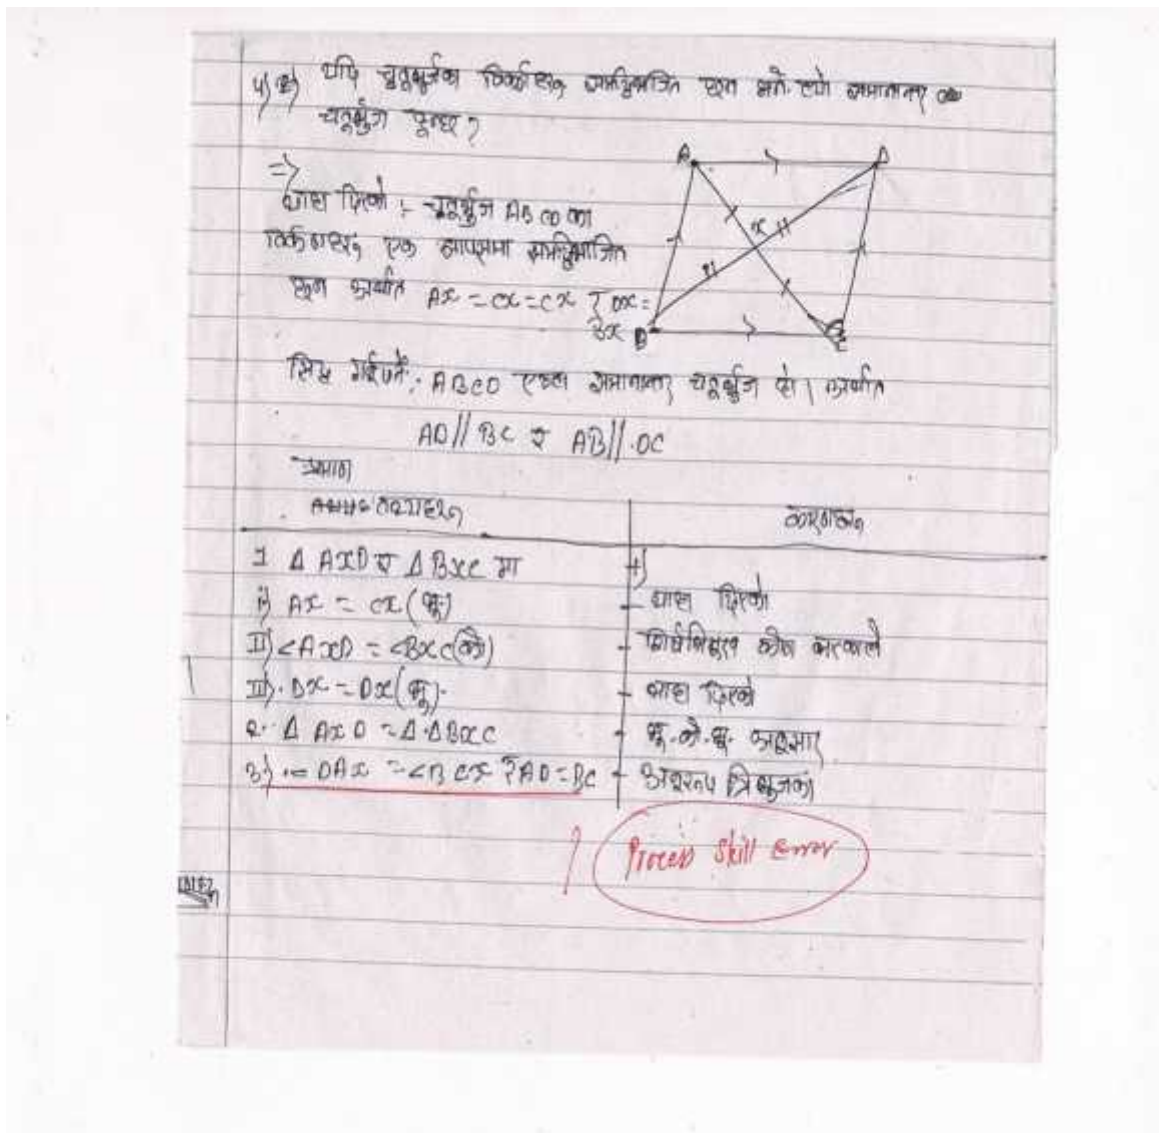 यदि चतुर्भुजका विकर्णहरू समद्विभाजित हुन भने त्यो समानान्तर
चतुर्भुज हुन्छ ?
=>
A D
x
B C
यहाँ दिएको :- चतुर्भुज ABCD का
विकर्णहरू एक आपसमा समद्विभाजित
हुन् अर्थात Ax = Cx = Cx र Dx =
Bx
सिद्ध गर्नुपर्ने: ABCD एउटा समानान्तर चतुर्भुज हो। अर्थात
AD // BC र AB // DC
प्रमाण
तथ्यहरू कारणहरू
1 Δ AXD र Δ BXC मा
i) Ax = Cx (भु.) - यहाँ दिएको
II) <AxD = <BxC (को) - शीर्षभिमुख कोण भएकाले
III). Dx = Dx (भु). - यहाँ दिएको
२. Δ AXD = Δ. ΔBXC - भु. को. भु. अनुसार
3) .< DAx = <BCx र AD = BC - अनुरूप त्रिभुजका
Process Skill Error